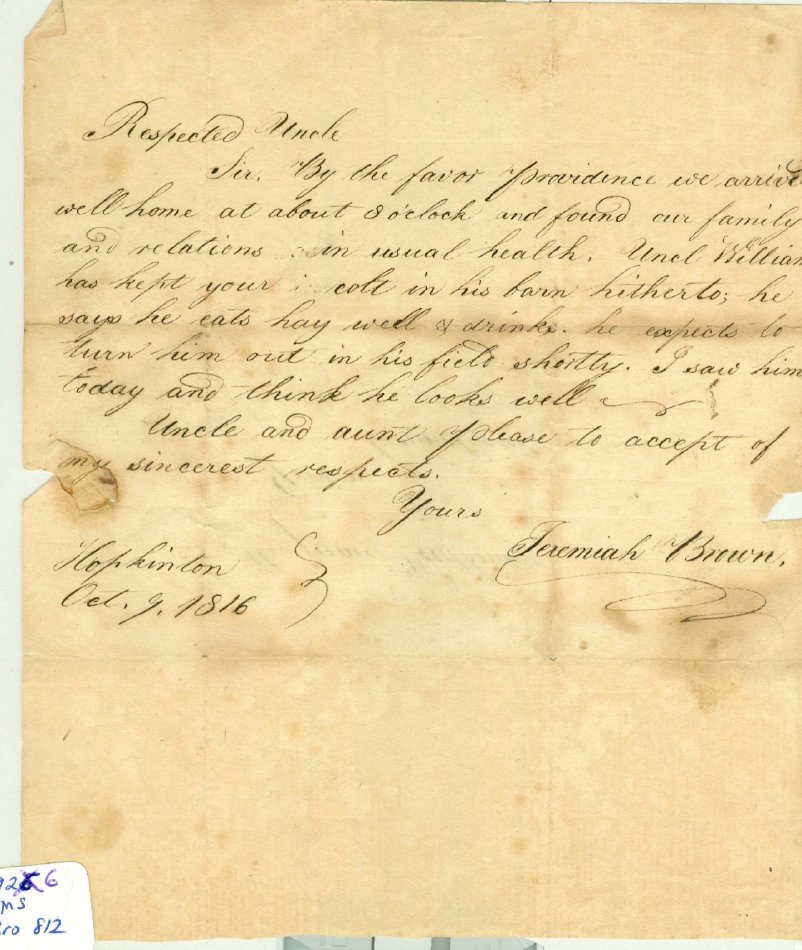 Respected Uncle
Sir. By the favor Providence we arrive
well home at about 8 o'clock and found our family
and relations in usual health. Uncl William
has kept your colt in his barn hitherto; he
says he eats hay well & drinks. he expects to
turn him out in his field shortly. I saw him
today and think he looks well
Uncle and aunt Please to accept of
my sincerest respects.
Yours
Jeremiah Brown.
Hopkinton
Oct. 9, 1816
6
MS
812